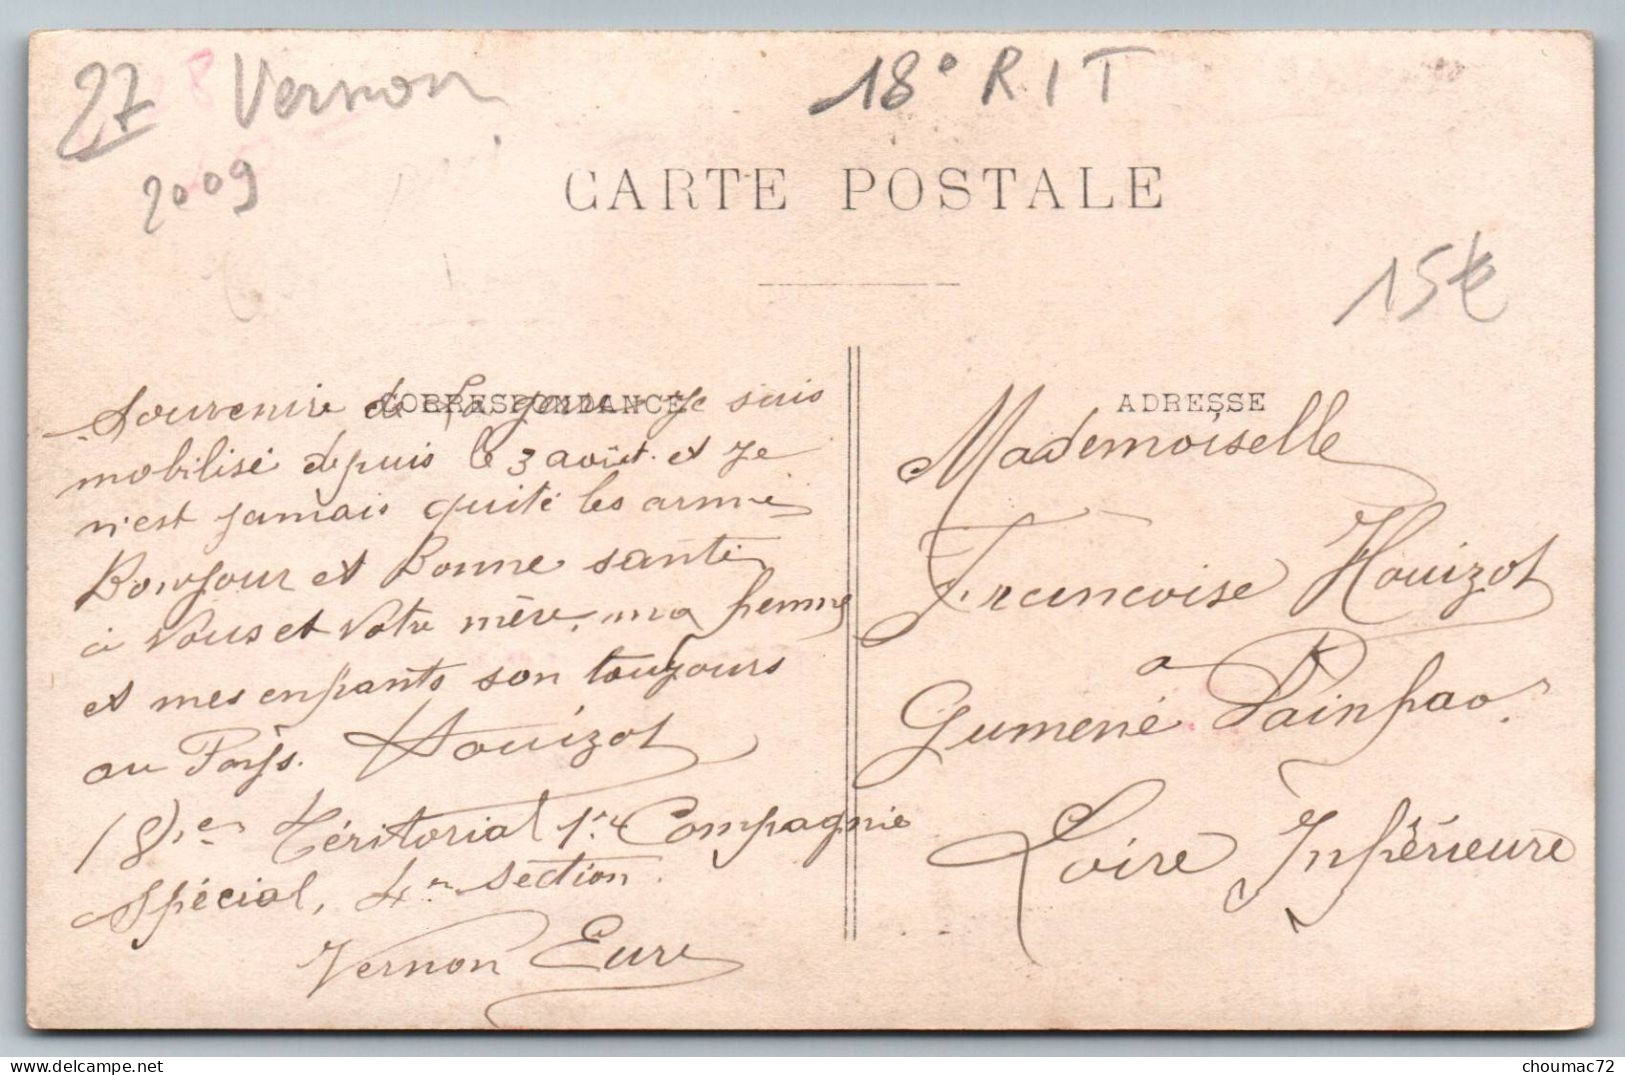 27 Vernon
2009
18e R I T
CARTE POSTALE
15€
CORRESPONDANCE
Souvenir de la gerre je suis
mobilisé depuis le 3 août. et je
n'est jamais quité les armé
Bonjour et Bonne santé
à vous et votre mère, ma femme
et mes enfants son toujours
au Pays. Houizot
18e Téritorial 1re Compagnie
Spécial, 4me section.
Vernon Eure
ADRESSE
Mademoiselle
Francoise Houizot
a
Gumené Painfao
Loire Inférieure
choumac72